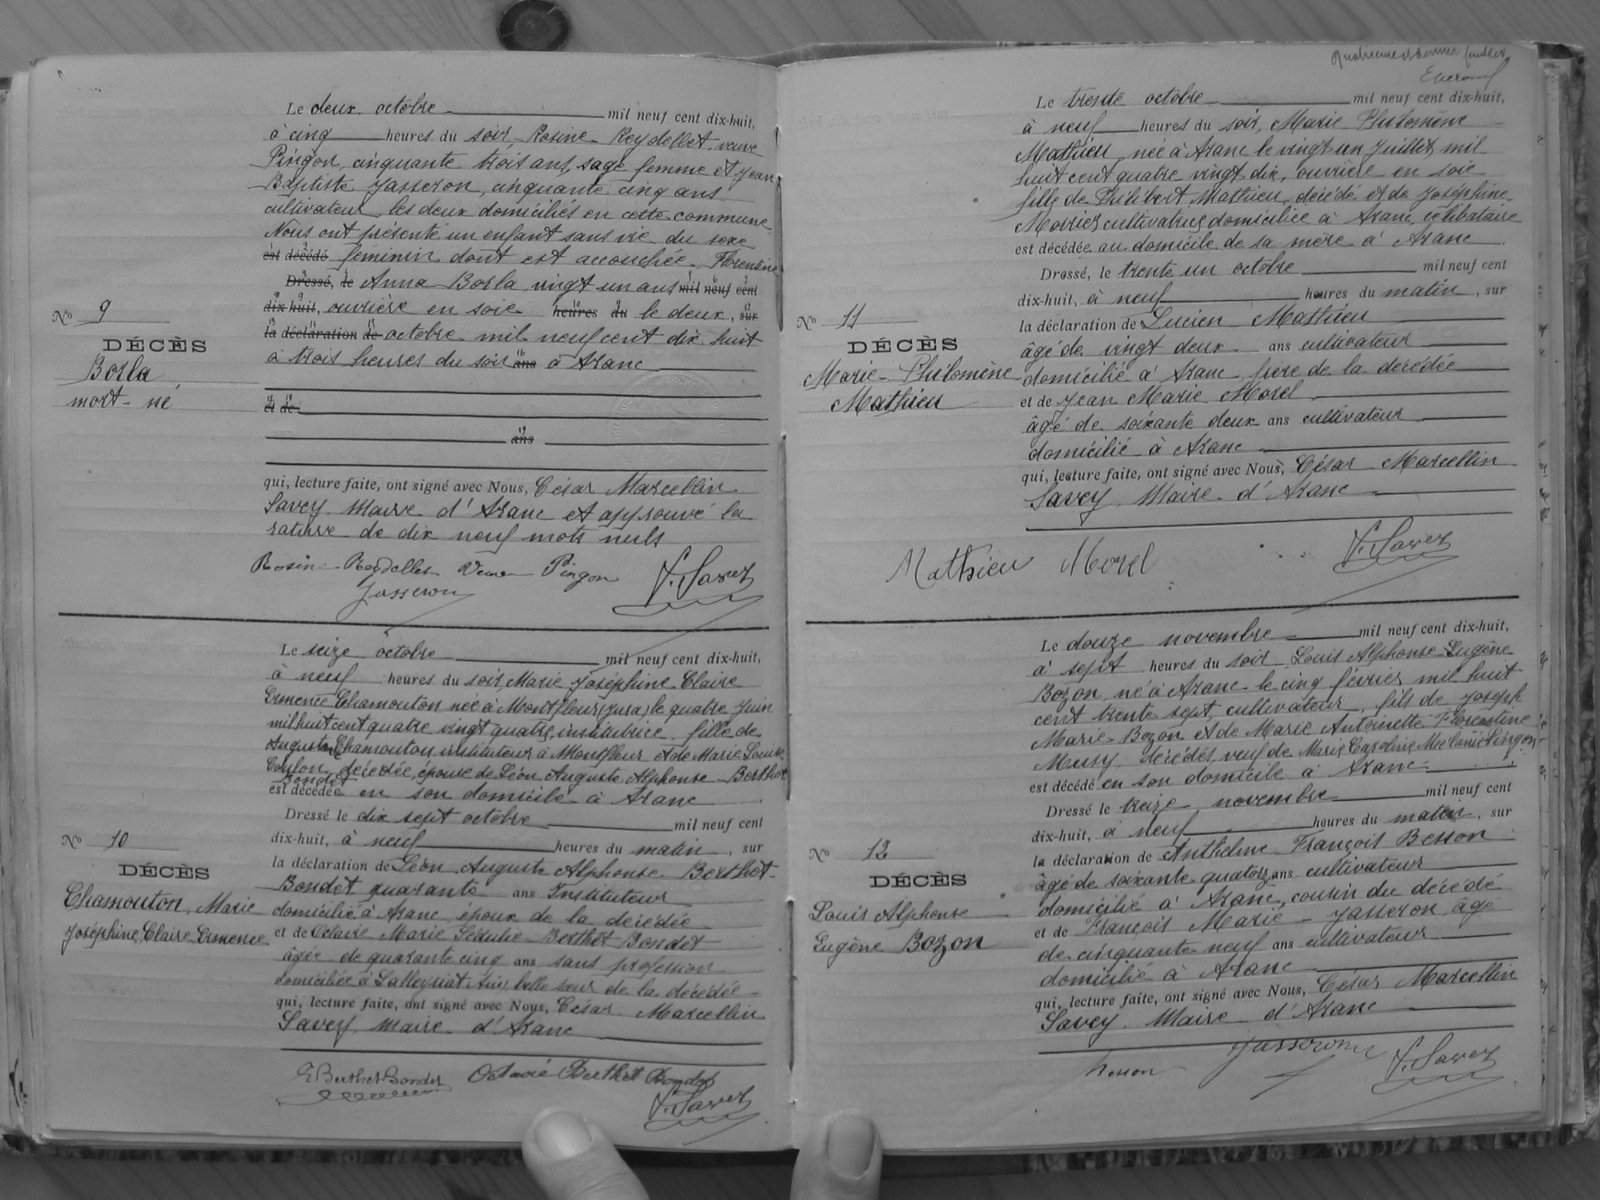 Le deux octobre mil neuf cent dix-huit,
à cinq heures du soir, Rosine Reydellet veuve
Pingon, cinquante trois ans, sage femme et Jean
Baptiste Jasseron, cinquante cinq ans
cultivateur, les deux domiciliés en cette commune
Nous ont présenté un enfant sans vie du sexe
est décédé féminin dont est accouchée Florentine
Dressé, le Anna Borla vingt un ans mil neuf cent
dix-huit, ouvrière en soie heures du le deux, sur
la déclaration de octobre mil neuf cent dix huit
à trois heures du soir ans à Aranc
et de
ans
qui, lecture faite, ont signé avec Nous, César Marcellin
Savey Maire d'Aranc et approuvé la
rature de dix neuf mots nuls
Rosine Reydellet Veuve Pingon
Jasseron
F. Savey
No 9
DÉCÈS
Borla
mort-né
Le seize octobre mil neuf cent dix-huit,
à neuf heures du soir, Marie Joséphine Claire
Ermence Chamouton née à Montfleur (Jura) le quatre Juin
mil huit cent quatre vingt quatre, institutrice, fille de
Auguste Chamouton instituteur à Montfleur et de Marie Louise
Coulon, décédée, épouse de Léon Auguste Alphonse Berthet
Bondet
est décédée en son domicile à Aranc
Dressé le dix sept octobre mil neuf cent
dix-huit, à neuf heures du matin, sur
la déclaration de Léon Auguste Alphonse Berthet-
Bondet quarante ans Instituteur
domicilié à Aranc époux de la décédée
et de Octavie Marie Berthet Bondet
âgée de quarante cinq ans sans profession
domiciliée à Salleyriat Ain, belle sœur de la décédée
qui, lecture faite, ont signé avec Nous, César Marcellin
Savey, Maire d'Aranc
Berthet-Bondet Octavie Berthet Bondet
F. Savey
No 10
DÉCÈS
Chamouton, Marie
Joséphine, Claire Ermence
feuillet
Le trente octobre mil neuf cent dix-huit,
à neuf heures du soir, Marie Philomène
Mathieu, née à Aranc le vingt un Juillet mil
huit cent quatre vingt dix, ouvrière en soie
fille de Philibert Mathieu, décédé et de Joséphine
cultivatrice domiciliée à Aranc, célibataire
est décédée au domicile de sa mère à Aranc
Dressé, le trente un octobre mil neuf cent
dix-huit, à neuf heures du matin, sur
la déclaration de Lucien Mathieu
âgé de vingt deux ans cultivateur
domicilié à Aranc, frère de la décédée
et de Jean Marie Morel
âgé de soixante deux ans cultivateur
domicilié à Aranc
qui, lecture faite, ont signé avec Nous, César Marcellin
Savey Maire d'Aranc
Mathieu Morel F. Savey
No 11
DÉCÈS
Marie-Philomène
Mathieu
Le douze novembre mil neuf cent dix-huit,
à sept heures du soir Louis Alphonse Eugène
Bozon, né à Aranc le cinq février mil huit
cent trente sept, cultivateur, fils de Joseph
Marie Bozon et de Marie Antoinette Florentine
Musy décédés, veuf de Marie Caroline Mélanie Pingon
est décédé en son domicile à Aranc
Dressé le treize novembre mil neuf cent
dix-huit, à neuf heures du matin, sur
la déclaration de Anthelme François Besson
âgé de soixante quatorze ans cultivateur
domicilié à Aranc, cousin du décédé
et de François Marie Jasseron âgé
de cinquante neuf ans cultivateur
domicilié à Aranc
qui, lecture faite, ont signé avec Nous, César Marcellin
Savey Maire d'Aranc
Besson Jasseron F. Savey
No 12
DÉCÈS
Louis Alphonse
Eugène Bozon